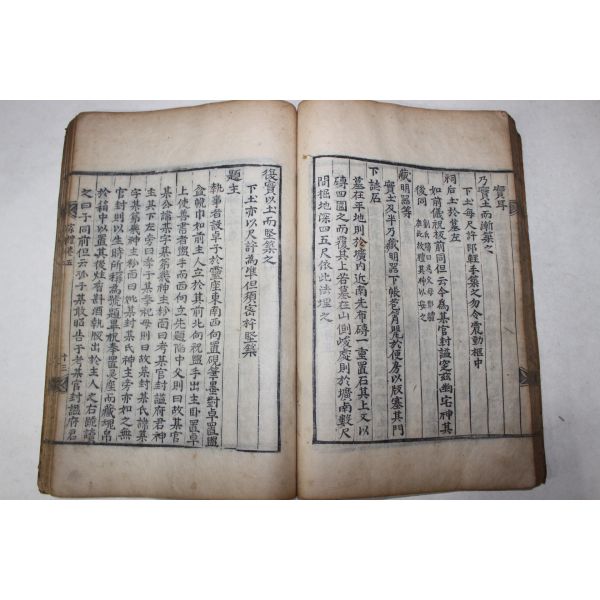 實耳
乃實土而漸築之
下土每尺許即輕手築之勿令震動柩中
祠后土於墓左
如前儀祝板前同但云今爲某官封諡窆兹幽宅神其
後同
藏明器等
實土及半乃藏明器下帳苞筲甖於便房以版塞其門
下誌石
墓在平地則於壙內近南先布磚一重置石其上又以
磚四圍之而覆其上若墓在山側峻處則於壙南數尺
間掘地深四五尺依此法埋之
復實以土而堅築之
下土亦以尺許爲準但須密杵堅築
題主
執事者設卓子於靈座東南西向置硯筆墨對卓置盥
盆帨巾如前主人立於其前北向祝盥手出主臥置卓
上使善書者盥手西向立先題陷中父則曰故某官
某公諱某字某第幾神主粉面曰考某官封諡府君神
主其下左旁曰孝子某奉祀母則曰故某封某氏諱某
字某第幾神主粉面曰妣某封某氏神主旁亦如之無
官封則以生時所稱爲號題畢祝奉置靈座而藏魂帛
於箱中以置其後炷香斟酒執版出於主人之右跪讀
之曰子同前但云孤子某敢昭告于考某官封諡府君
家禮卷五
十三